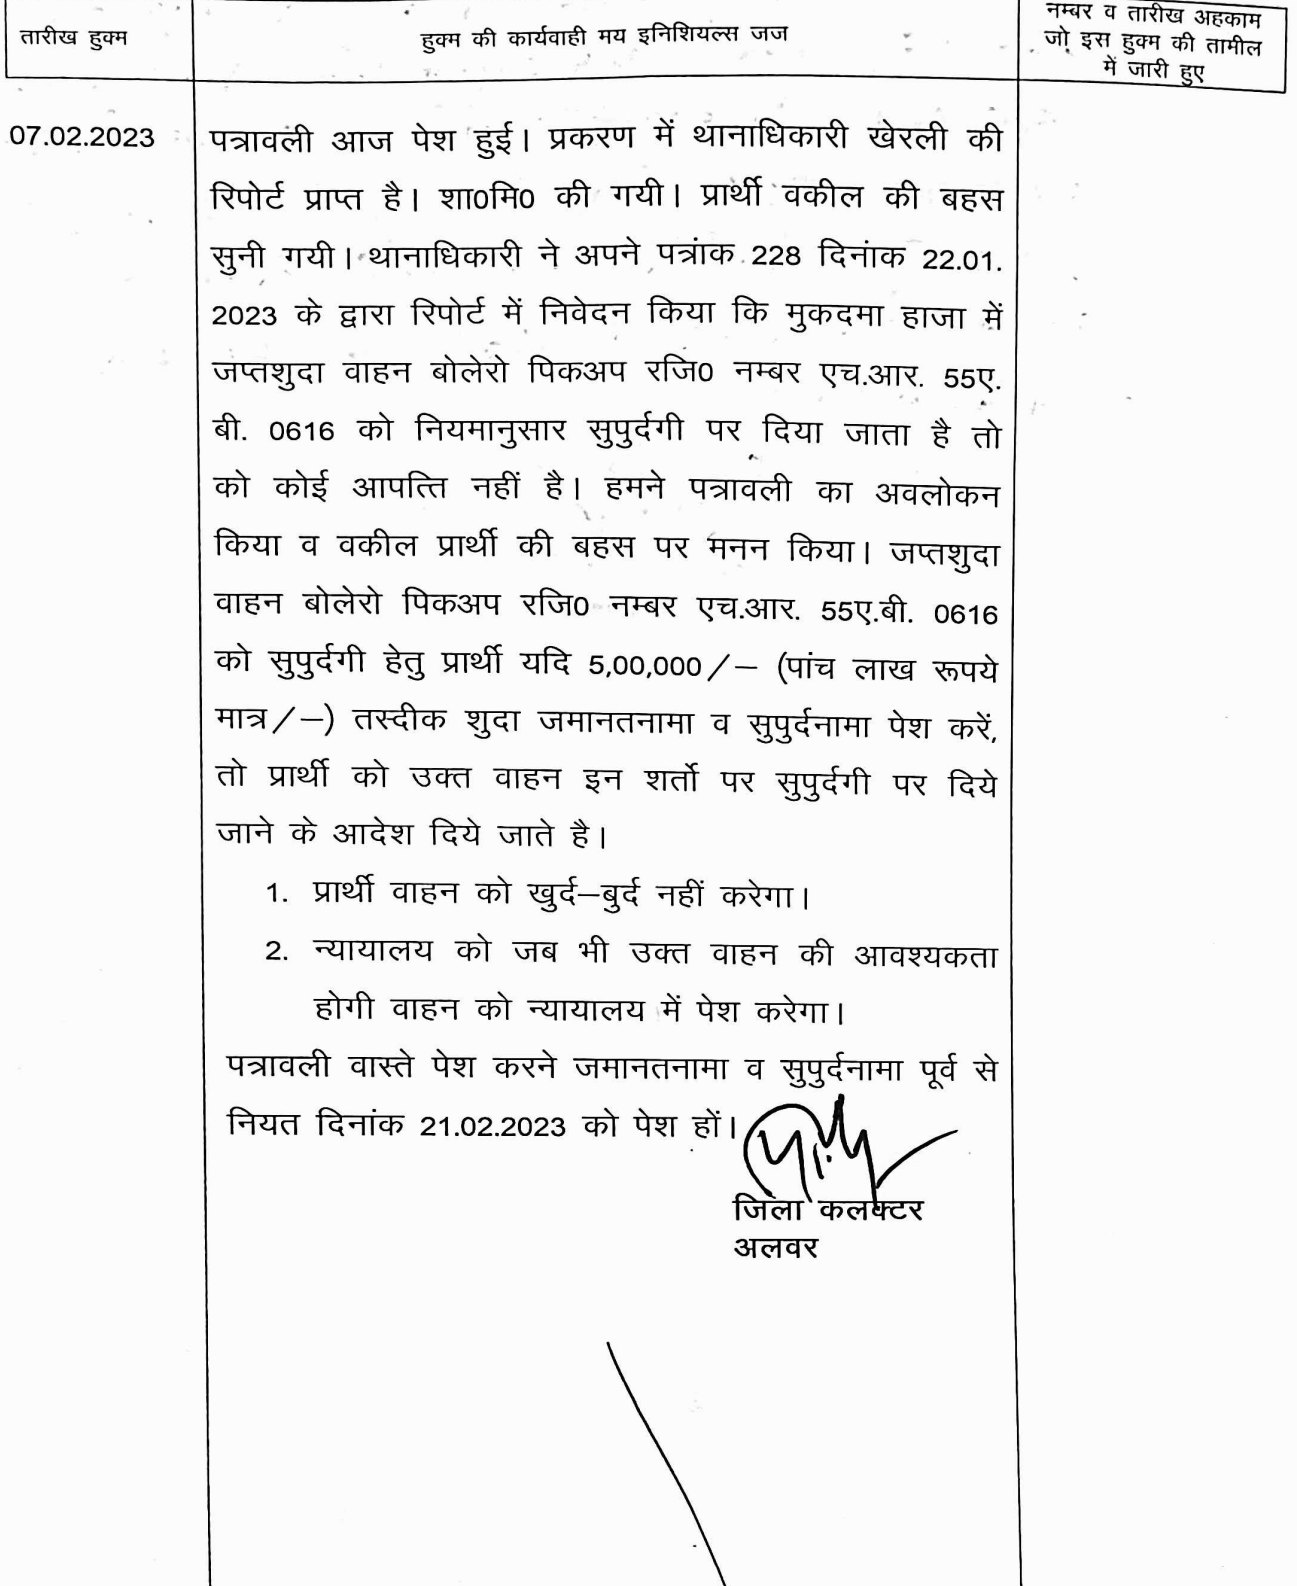 तारीख हुक्म
हुक्म की कार्यवाही मय इनिशियल्स जज
नम्बर व तारीख अहकाम
जो इस हुक्म की तामील
में जारी हुए
07.02.2023
पत्रावली आज पेश हुई। प्रकरण में थानाधिकारी खेरली की
रिपोर्ट प्राप्त है। शा0मि0 की गयी। प्रार्थी वकील की बहस
सुनी गयी। थानाधिकारी ने अपने पत्रांक 228 दिनांक 22.01.
2023 के द्वारा रिपोर्ट में निवेदन किया कि मुकदमा हाजा में
जप्तशुदा वाहन बोलेरो पिकअप रजि0 नम्बर एच.आर. 55ए.
बी. 0616 को नियमानुसार सुपुर्दगी पर दिया जाता है तो
को कोई आपत्ति नहीं है। हमने पत्रावली का अवलोकन
किया व वकील प्रार्थी की बहस पर मनन किया। जप्तशुदा
वाहन बोलेरो पिकअप रजि0 नम्बर एच.आर. 55ए.बी. 0616
को सुपुर्दगी हेतु प्रार्थी यदि 5,00,000/– (पांच लाख रूपये
मात्र/–) तस्दीक शुदा जमानतनामा व सुपुर्दनामा पेश करें,
तो प्रार्थी को उक्त वाहन इन शर्तो पर सुपुर्दगी पर दिये
जाने के आदेश दिये जाते है।
1. प्रार्थी वाहन को खुर्द–बुर्द नहीं करेगा।
2. न्यायालय को जब भी उक्त वाहन की आवश्यकता
होगी वाहन को न्यायालय में पेश करेगा।
पत्रावली वास्ते पेश करने जमानतनामा व सुपुर्दनामा पूर्व से
नियत दिनांक 21.02.2023 को पेश हों।
जिला कलक्टर
अलवर